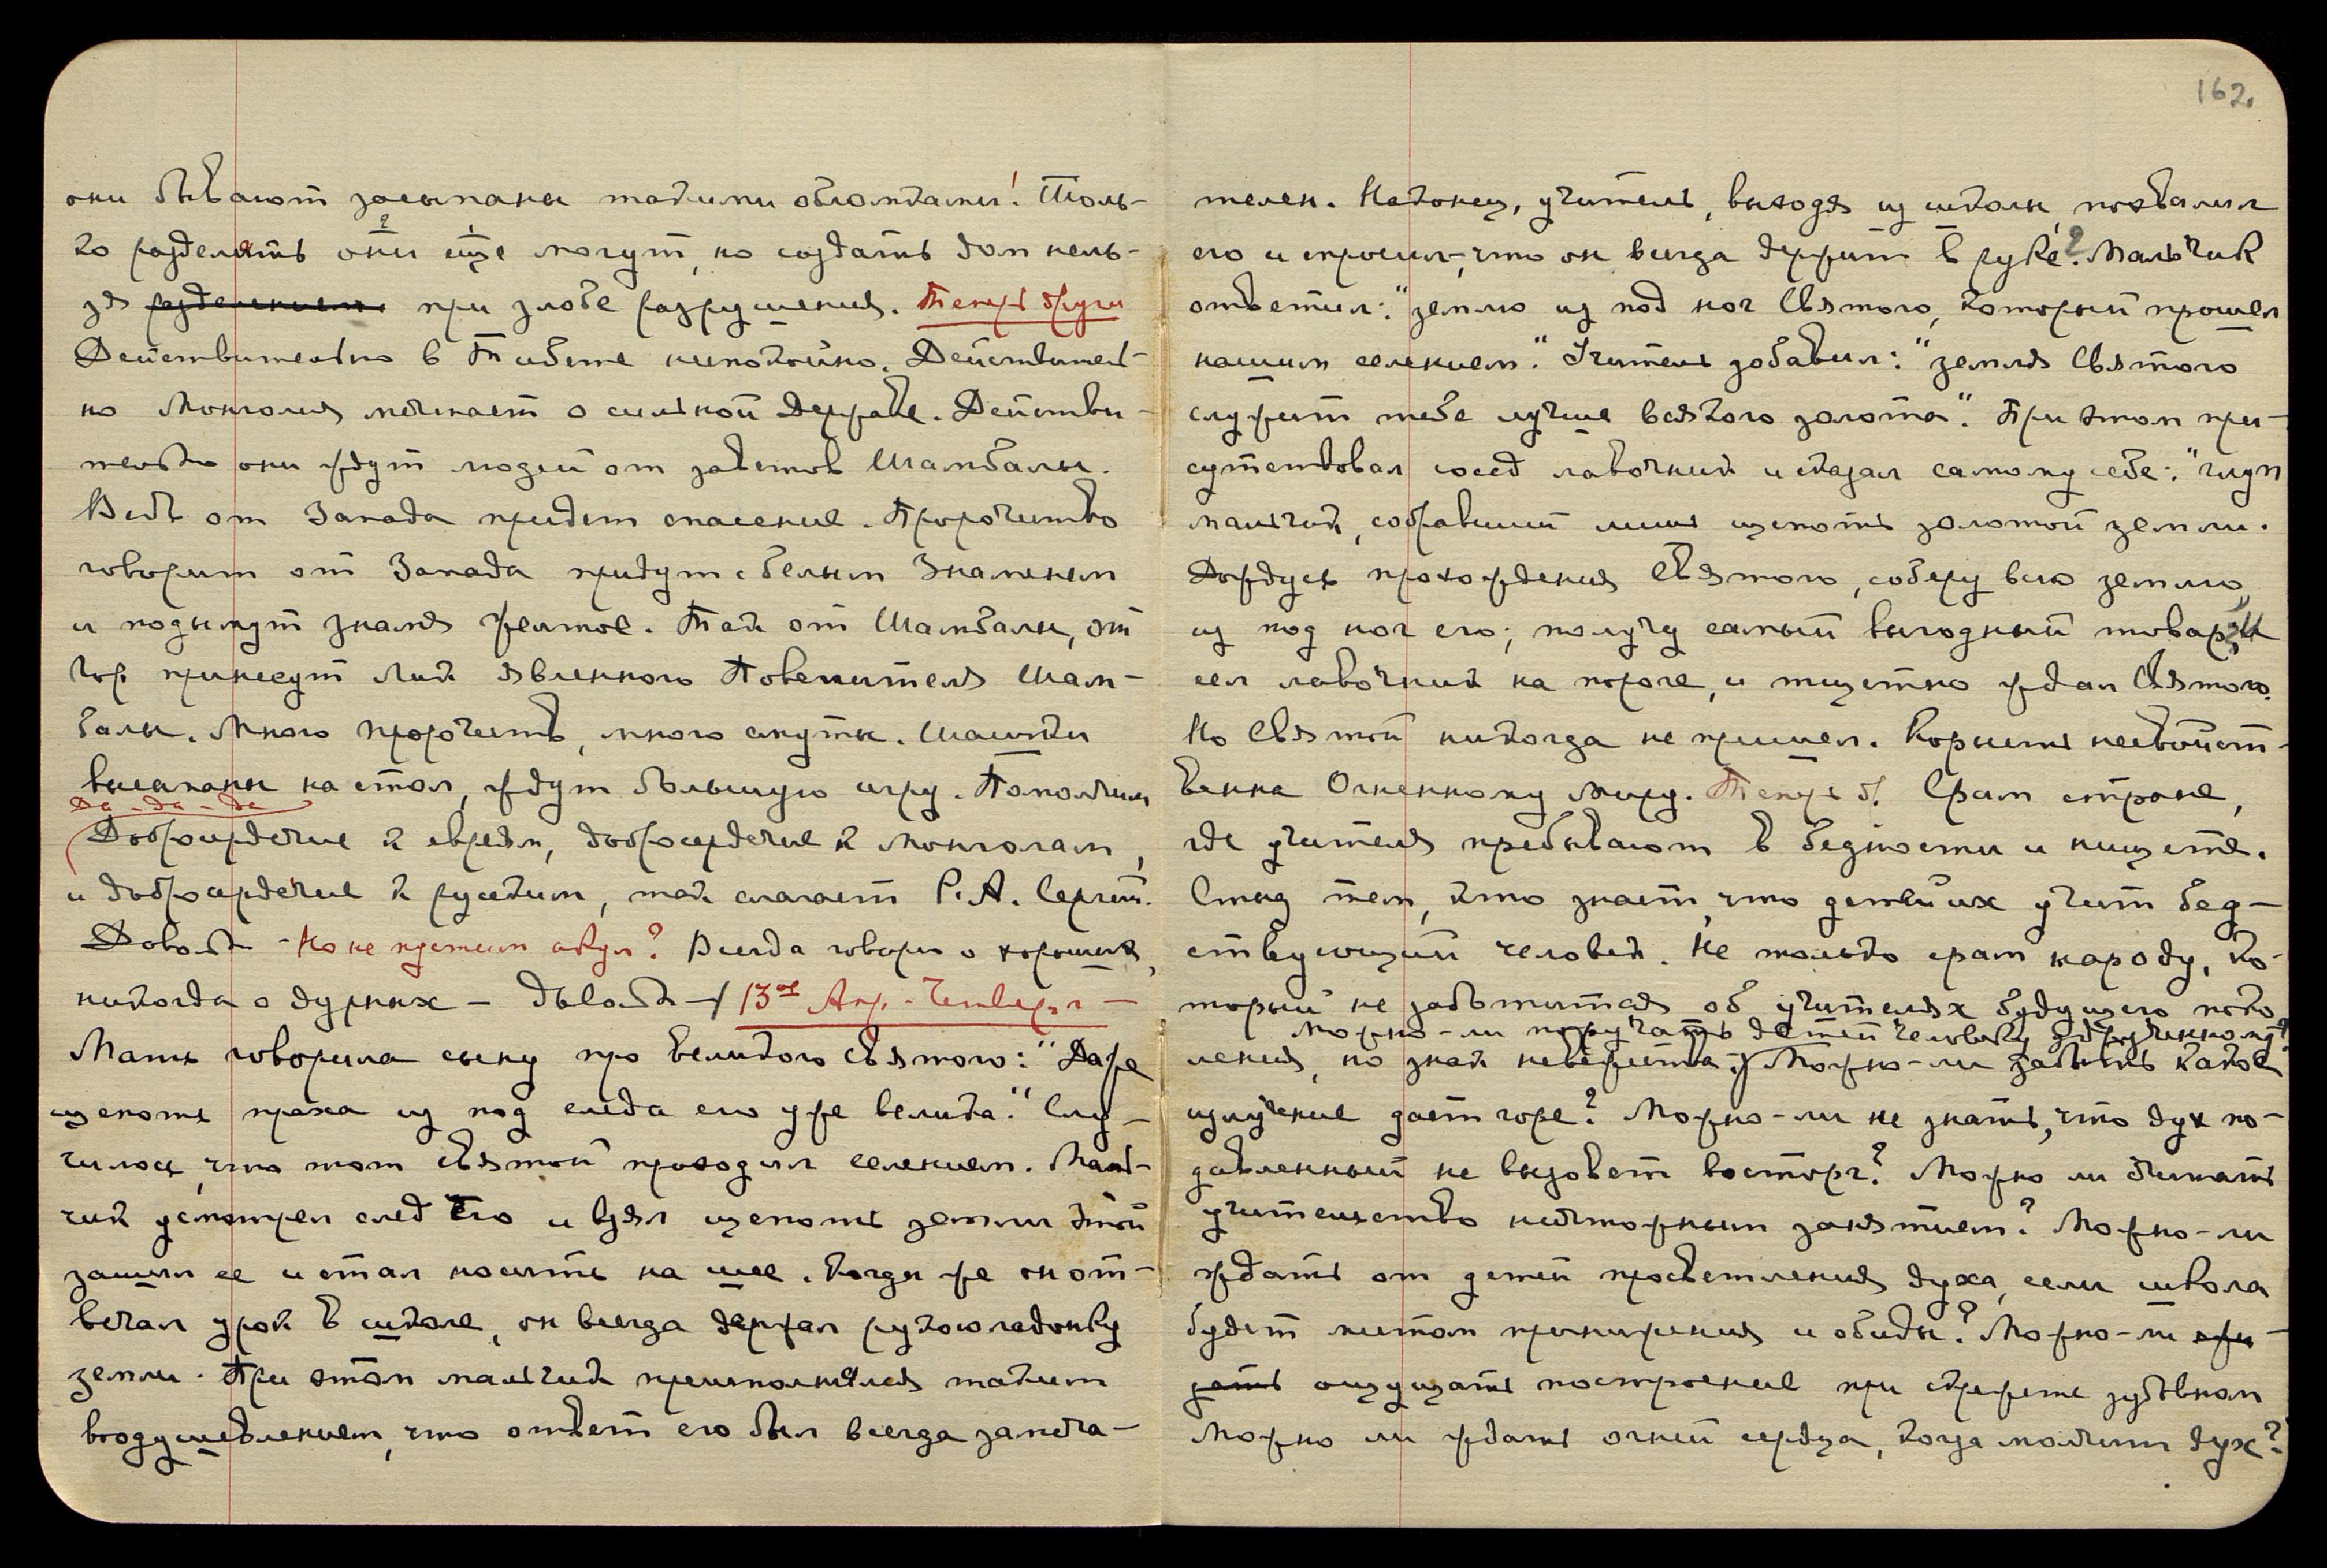 они бывают засыпаны такими обломками! Толь-
ко разделять они еще могут, но создать дом нель-
зя разделением при злобе разрушения. Теперь други
Действительно в Тибете неспокойно. Действитель-
но Монголия мечтает о сильной Державе. Действи-
тельно они ждут людей от заветов Шамбалы.
Ведь от Запада придет спасение. Пророчество
говорит от Запада придут с белым Знаменем
и подымут знамя желтое. Так от Шамбалы, от
гор принесут Лик явленного Повелителя Шам-
балы. Много пророчеств, много смуты. Шашки
высыпаны на стол, ждут большую игру. Помолчим
Да - да - да
Добросердечие к евреям, добросердечие к монголам,
и добросердечие к русским, так слагает С. А. Сергий.
Довольно - Но не пустим акул? Всегда говори о хороших,
никогда о дурных - довольно - / 13ое Апр. - Четверг -
Мать говорила сыну про великого святого: "Даже
щепоть праха из под следа его уже велика." Слу-
чилось, что тот святой проходил селением. Маль-
чик усмотрел след Его и взял щепоть земли этой
зашил ее и стал носить на шее. Когда же он от-
вечал урок в школе, он всегда держал рукою ладонку
земли. При этом мальчик преисполнялся таким
воодушевлением, что ответ его был всегда замеча-
162.
телен. Наконец, учитель, выходя из школы, похвалил
его и спросил, что он всегда держит в руке? Мальчик
ответил: "землю из под ног Святого, который прошел
нашим селением." Учитель добавил: "земля Святого
служит тебе лучше всякого золота". При этом при-
сутствовал сосед лавочник и сказал самому себе: "глуп
мальчик, собравший лишь щепоть золотой земли.
Дождусь прохождения Святого, соберу всю землю,
из под ног его, получу самый выгодный товар." И
сел лавочник на пороге, и тщетно ждал Святого.
Но Святой никогда не пришел. Корысть несвойст-
венна Огненному Миру. Теперь б. Срам стране,
где учителя пребывают в бедности и нищете.
Стыд тем, кто знает, что детей их учит бед-
ствующий человек. Не только срам народу, ко-
торый не заботится об учителях будущего поко-
Можно-ли поручать детей человеку удрученному?
ления, но знак невежества. Можно-ли забыть какое
излучение дает горе? Можно-ли не знать, что дух по-
давленный не вызовет восторг? Можно ли считать
учительство ничтожным занятием? Можно-ли
ждать от детей просветления духа, если школа
будет местом принижения и обиды? Можно-ли ожи-
дать ощущать построение при скрежете зубовном
Можно ли ждать огней сердца, когда молчит дух?